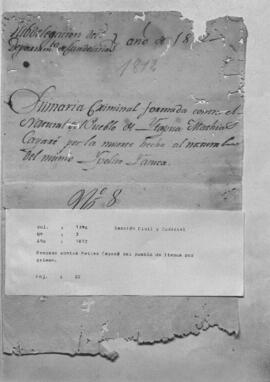 Subdelegacion del
Departamto de Candelaria
año de 18
1812
Sumaria Criminal formada contra el
Natural del Pueblo de Ytapua Mathias
Cayaré por la muerte hecha al natural
del mismo
No 8
Vol. : 1396 Sección Civil y Judicial
Nº : 3
Año : 1812
Proceso contra Matias Cayaré del pueblo de Itapua por
crimen.
Foj. : 22